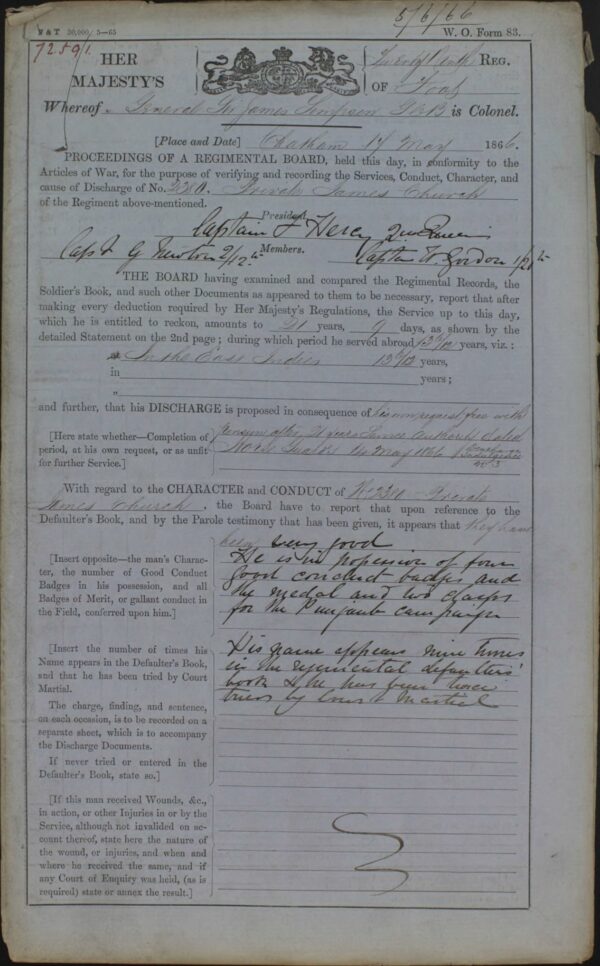 5/6/66
F & T 20,000/ 5—65
W. O. Form 83.
HER MAJESTY'S
REG.
OF Foot
Whereof General Sir James Simpson GCB is Colonel.
[Place and Date] Chatham 17 May 1866.
PROCEEDINGS OF A REGIMENTAL BOARD, held this day, in conformity to the
Articles of War, for the purpose of verifying and recording the Services, Conduct, Character, and
cause of Discharge of No. Private James Church
of the Regiment above-mentioned.
President.
Captain Hercy
Members.
Capt G Newton 2/12th
Captn Gordon
THE BOARD having examined and compared the Regimental Records, the
Soldier's Book, and such other Documents as appeared to them to be necessary, report that after
making every deduction required by Her Majesty's Regulations, the Service up to this day,
which he is entitled to reckon, amounts to 21 years, 9 days, as shown by the
detailed Statement on the 2nd page; during which period he served abroad years, viz.:
in the East Indies years,
in years;
„
and further, that his DISCHARGE is proposed in consequence of his own request free with
[Here state whether—Completion of
period, at his own request, or as unfit
for further Service.]
pension after 21 years Service Authority dated
May 1866
With regard to the CHARACTER and CONDUCT of Private
James Church, the Board have to report that upon reference to the
Defaulter's Book, and by the Parole testimony that has been given, it appears that
[Insert opposite—the man's Character,
the number of Good Conduct
Badges in his possession, and all
Badges of Merit, or gallant conduct in
the Field, conferred upon him.]
been very good
He is in possession of four
good conduct badges and
the medal and two clasps
for the Punjaub campaign
[Insert the number of times his
Name appears in the Defaulter's Book,
and that he has been tried by Court
Martial.
The charge, finding, and sentence,
on each occasion, is to be recorded on a
separate sheet, which is to accompany
the Discharge Documents.
If never tried or entered in the
Defaulter's Book, state so.]
His name appears nine times
in the regimental defaulters'
book & he has been twice
tried by Court Martial
[If this man received Wounds, &c.,
in action, or other Injuries in or by the
Service, although not invalided on account
thereof, state here the nature of
the wound, or injuries, and when and
where he received the same, and if
any Court of Enquiry was held, (as is
required) state or annex the result.]